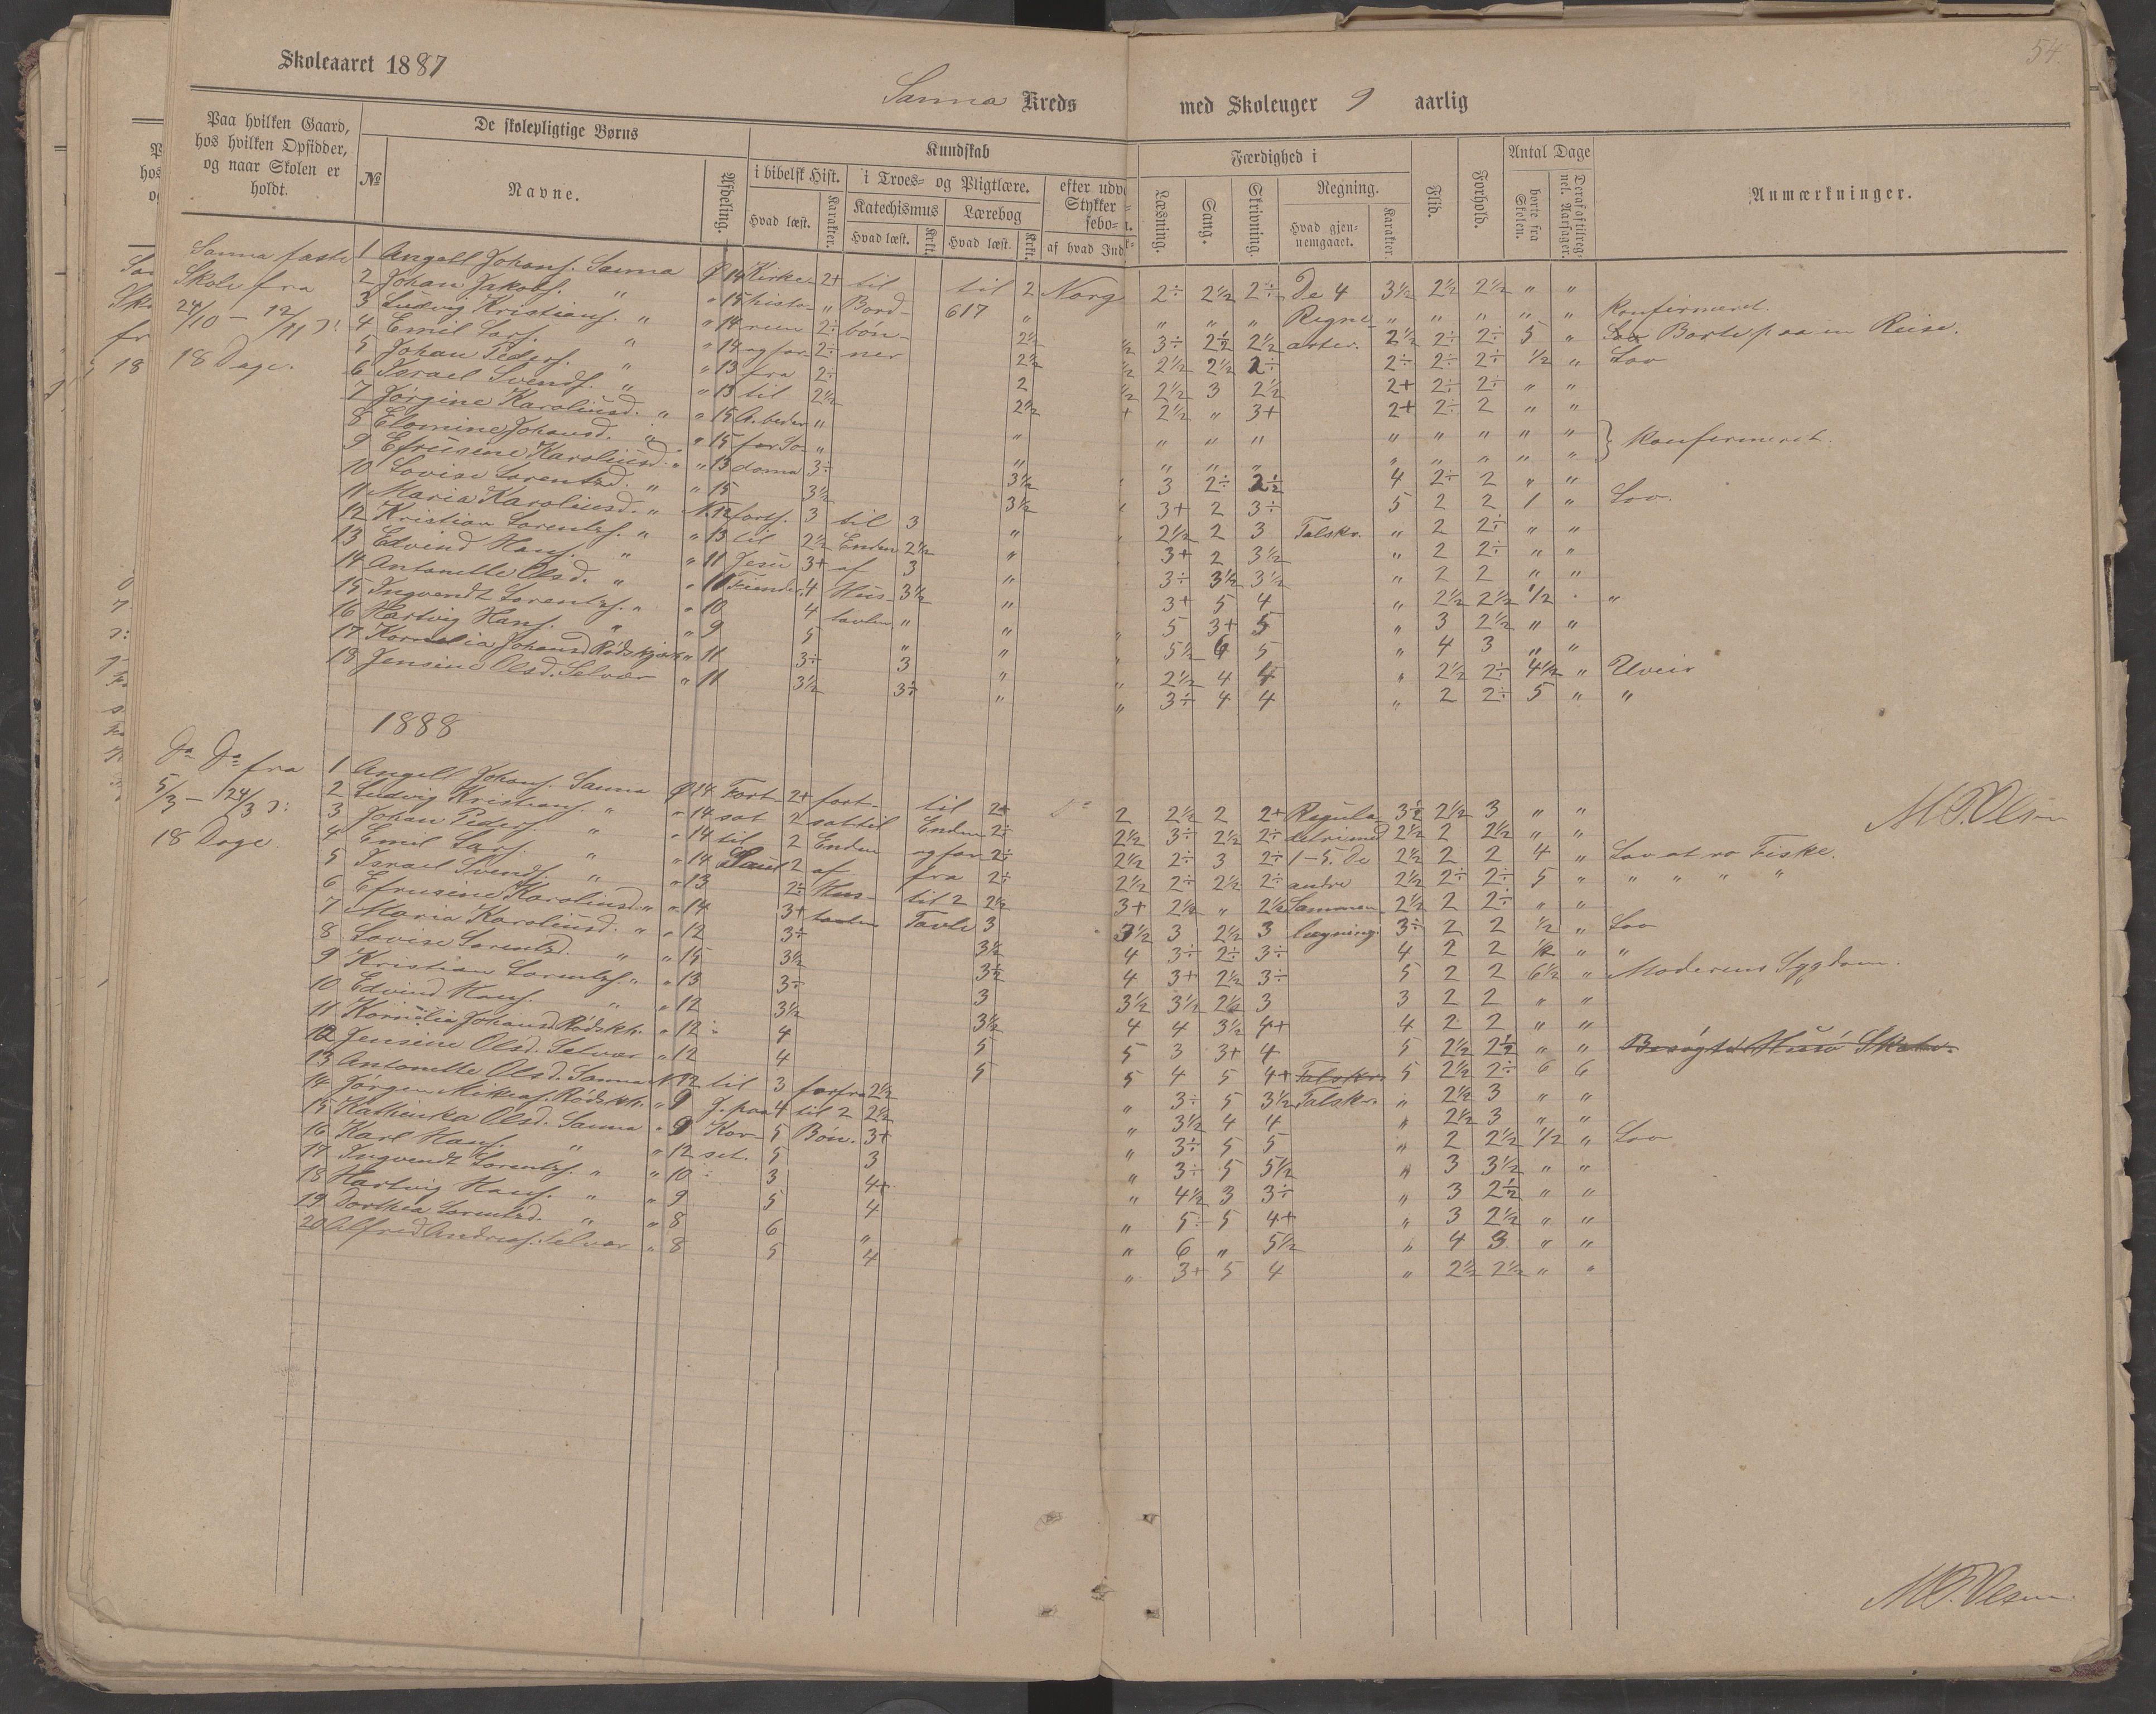 54.
Skoleaaret 1887
Sanna Kreds med Skoleuger 9 aarlig
Paa hvilken Gaard, hos hvilken Opsidder, og naar Skolen er holdt.
De skolepligtige Børns
№
Navne.
Afdeling.
Kundskab
i bibelsk Hist.
Hvad læst.
Karakter.
i Troes- og Pligtlære.
Katechismus
Hvad læst.
Krkt.
Lærebog
Hvad læst.
Krkt.
efter udv
Stykker
sebo-
af hvad Ind
Færdighed i
Læsning.
Sang.
Skrivning
Regning.
Hvad gjennemgaaet.
Karakter.
Flid.
Forhold.
Antal Dage
borte fra Skolen.
Deraf af tilregnel. Aarsager.
Anmærkninger.
Sanna faste
Skole fra
24/10 - 12/11 ɔ:
18 Dage.
1 Angell Johans. Sanna Ø 14 Kirke 2+ til til 2 Norg 2÷ 2½ 2÷ De 4 3½ 2½ 2½ " "
2 Johan Jakobs. " " 15 histo- " Bord- 617 " " " " Regne " " " " " Konfirmeret.
3 Ludvig Kristians. " " 14 rien 2÷ bøn- 2½ ½ 3÷ 2½ 2½ arter. 2½ 2÷ 2÷ 5 " Borte paa en Reise.
4 Emil Lars. " " 14 og for 2÷ ner 2½ ½ 2½ 2½ 2÷ 2÷ 2÷ 2÷ ½ " Lov
5 Johan Peders. " " 13 fra 2÷ 2 ½ 2½ 3 2½ 2+ 2÷ 2÷ " "
6 Israel Svends. " " 13 til 2½ 2½ + 2½ " 3+ 2+ 2÷ 2 " "
7 Jørgine Karoliusd. " " 15 A. beder " " " " " " " " " "
8 Elomine Johansd. " " 15 for So- " " " " " " " " " " Konfirmeret.
9 Efrusine Karoliusd. " " 13 doma 3÷ 3½ 3 2÷ 2½ 4 2÷ 2 " "
10 Lovise Lorentzd. " " 15 3½ 3½ 3+ 2 3÷ 5 2 2 1 " Lov.
11 Maria Karoliusd. " N. 12 forts. 3 til 3 " 2½ 2 3 Talskr. " 2 2÷ " "
12 Kristian Lorentzs. " " 13 til 2½ Enden 2½ " 3+ 2 3½ " 2 2÷ " "
13 Edvind Hans. " " 11 Jesu 3+ af 3 " 3÷ 3½ 3½ " 2 2 " "
14 Antonette Olsd. " " 11 Fiender. 4 Hus- 3½ " 3+ 5 4 " 2½ 2½ ½ . "
15 Ingvendt Lorentzs. " " 10 4 tavlen " " 5 3+ 5 " 3 2½ " "
16 Hartvig Hans. " " 9 5 " " 5½ 6 5 " 4 3 " "
17 Kornelia Johansd Rødskjær " 11 3÷ 3 " 2½ 4 4 " 2½ 2÷ 4½ " Uveir
18 Jensine Olsd. Selvær " 11 3½ 3÷ " 3÷ 4 4 " 2 2÷ 5 " "
1888
M O. Olsen
Do Do fra
5/3 - 24/3 ɔ:
18 Dage.
1 Angell Johans. Sanna Ø 14 Fort- 2+ fort- til 2+ Do 2 2½ 2 2+ Regula- 3½ 2½ 3 " "
2 Ludvig Kristians. " " 14 sat 2 sat til Enden 2÷ 2½ 3÷ 2½ 2÷ detri med 2½ 2 2½ " "
3 Johan Peders. " " 14 til 2 Enden og for 2÷ 2½ 2÷ 3 2÷ 1-5. De 2½ 2 2 4 " Lov at ro Fiske.
4 Emil Lars. " " 14 Paul 2 af fra 2÷ 2½ 2÷ 2½ 2÷ andre 2½ 2÷ 2÷ 5 " " " " "
5 Israel Svends. " " 13 2÷ Hus- til 2 2½ 3+ 2½ " 2½ Sammen- 2½ 2 2÷ " "
6 Efrusine Karoliusd. " " 14 3+ tavlen Tavle 3 3½ 3 2½ 3 lægning. 3÷ 2 2 ½ " Lov
7 Maria Karoliusd. " " 12 3÷ 3½ 4 3÷ 2÷ 3÷ 4 2 2 ½ " "
8 Lovise Lorentzd. " " 15 3½ 3½ 4 3+ 2½ 3÷ 5 2 2 6½ " Moderens Sygdom.
9 Kristian Lorentzs. " " 13 3÷ 3 3½ 3½ 2½ 3 3 2 2 " "
10 Edvind Hans. " " 12 3½ 3½ 4 4 3½ 4+ 4 2 2 " "
11 Kornelia Johansd. Rødskh. " 12 4 5 5 3 3+ 4 5 2½ 2½ " " Besøgte Husø Skole.
12 Jensine Olsd. Selvær " 12 4 5 5 4 5 4+ Talskr. 5 2½ 2÷ 6 6
13 Antonette Olsd. Sanna N 12 til 3 forfra 2½ " 3÷ 5 3½ Talskr. " 2½ 3 " "
14 Jørgen Mikkels. Rødskh. " 9 J. paa 4 til 2 2½ " 3½ 4 4 " 2½ 3 " "
15 Kathinka Olsd. Sanna " 9 Kor- 5 Bøn. 3+ " 3÷ 5 5 " 2 2½ ½ " Lov
16 Karl Hans. " " 12 set. 5 3 " 3÷ 5 5½ " 3 3½ " "
17 Ingvendt Lorentzs. " " 10 3 4+ " 4½ 3 3÷ " 3 2½ " "
18 Hartvig Hans. " " 9 5 4 " 5÷ 5 4+ " 3 2½ " "
19 Dorthea Lorentzd. " " 8 6 " " 6 " 5½ " 4 3 " "
20 Alfred Andreas. Selvær " 8 5 4 " 3+ 5 4 " 2½ 2½ " "
M O. Olsen